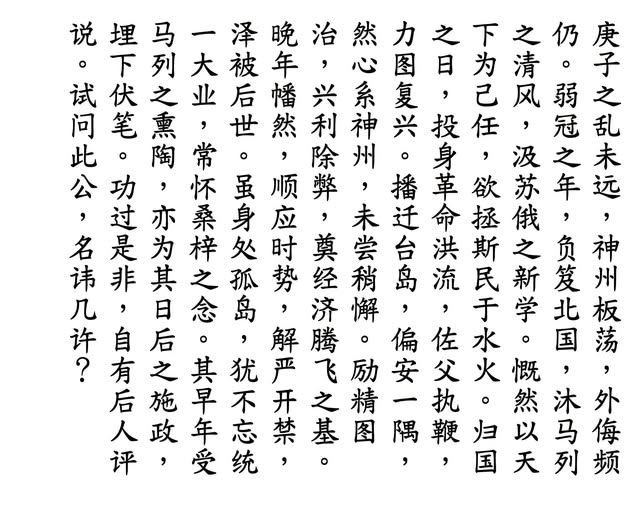 庚子之乱未远，神州板荡，外侮频
仍。弱冠之年，负笈北国，沐马列
之清风，汲苏俄之新学。慨然以天
下为己任，欲拯斯民于水火。归国
之日，投身革命洪流，佐父执鞭，
力图复兴。播迁台岛，偏安一隅，
然心系神州，未尝稍懈。励精图
治，兴利除弊，奠经济腾飞之基。
晚年幡然，顺应时势，解严开禁，
泽被后世。虽身处孤岛，犹不忘统
一大业，常怀桑梓之念。其早年受
马列之熏陶，亦为其日后之施政，
埋下伏笔。功过是非，自有后人评
说。试问此公，名讳几许？